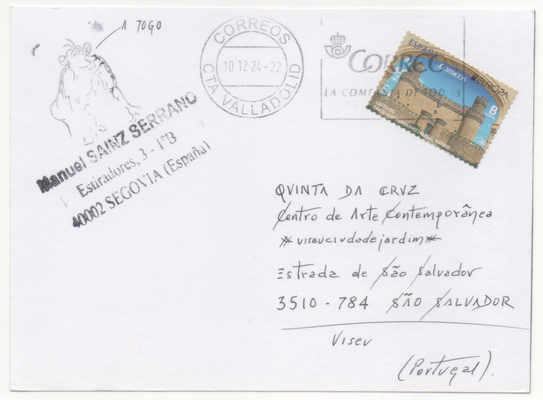 A TOGO
CORREOS
10 12 24-22
CTA VALLADOLID
CORREOS
LA COMPAÑIA DE TODOS
ESPAÑA
CORREOS
EUROPA
B
Manuel SAINZ SERRANO
Estiradores, 3 - 1ºB
40002 SEGOVIA (España)
QVINTA DA CRVZ
Centro de Arte Contemporânea
*viseuciudadejardim*
Estrada de São Salvador
3510 - 784 SÃO SALVADOR
Viseu
(Portugal).